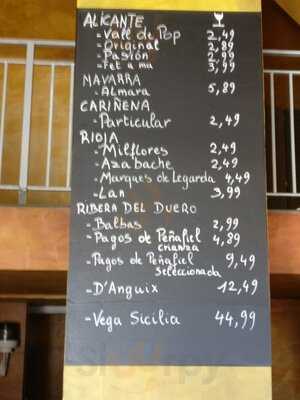 ALICANTE
- Vall de Pop 2,49
- Original 2,89
- Pasión 2,99
- Fet a ma 3,99
NAVARRA
- ALmara 5,89
CARIÑENA
- Particular 2,49
RIOJA
- Milflores 2,49
- Azabache 2,49
- Marques de Legarda 4,49
- Lan 3,99
RIBERA DEL DUERO
- Balbas 2,99
- Pagos de Peñafiel 4,89
crianza
- Pagos de Peñafiel 9,49
Seleccionada
- D'Anguix 12,49
- Vega Sicilia 44,99